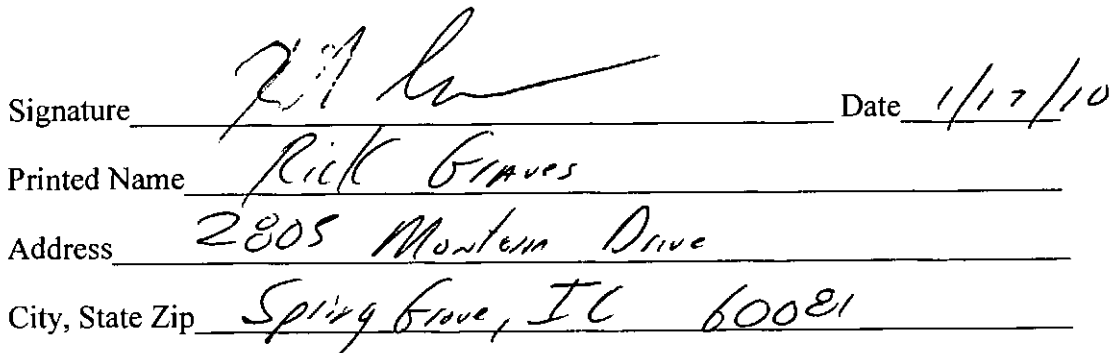 Signature Date 1/17/10
Printed Name Rick Graves
Address 2805 Drive
City, State Zip Spring Grove, IL 60081